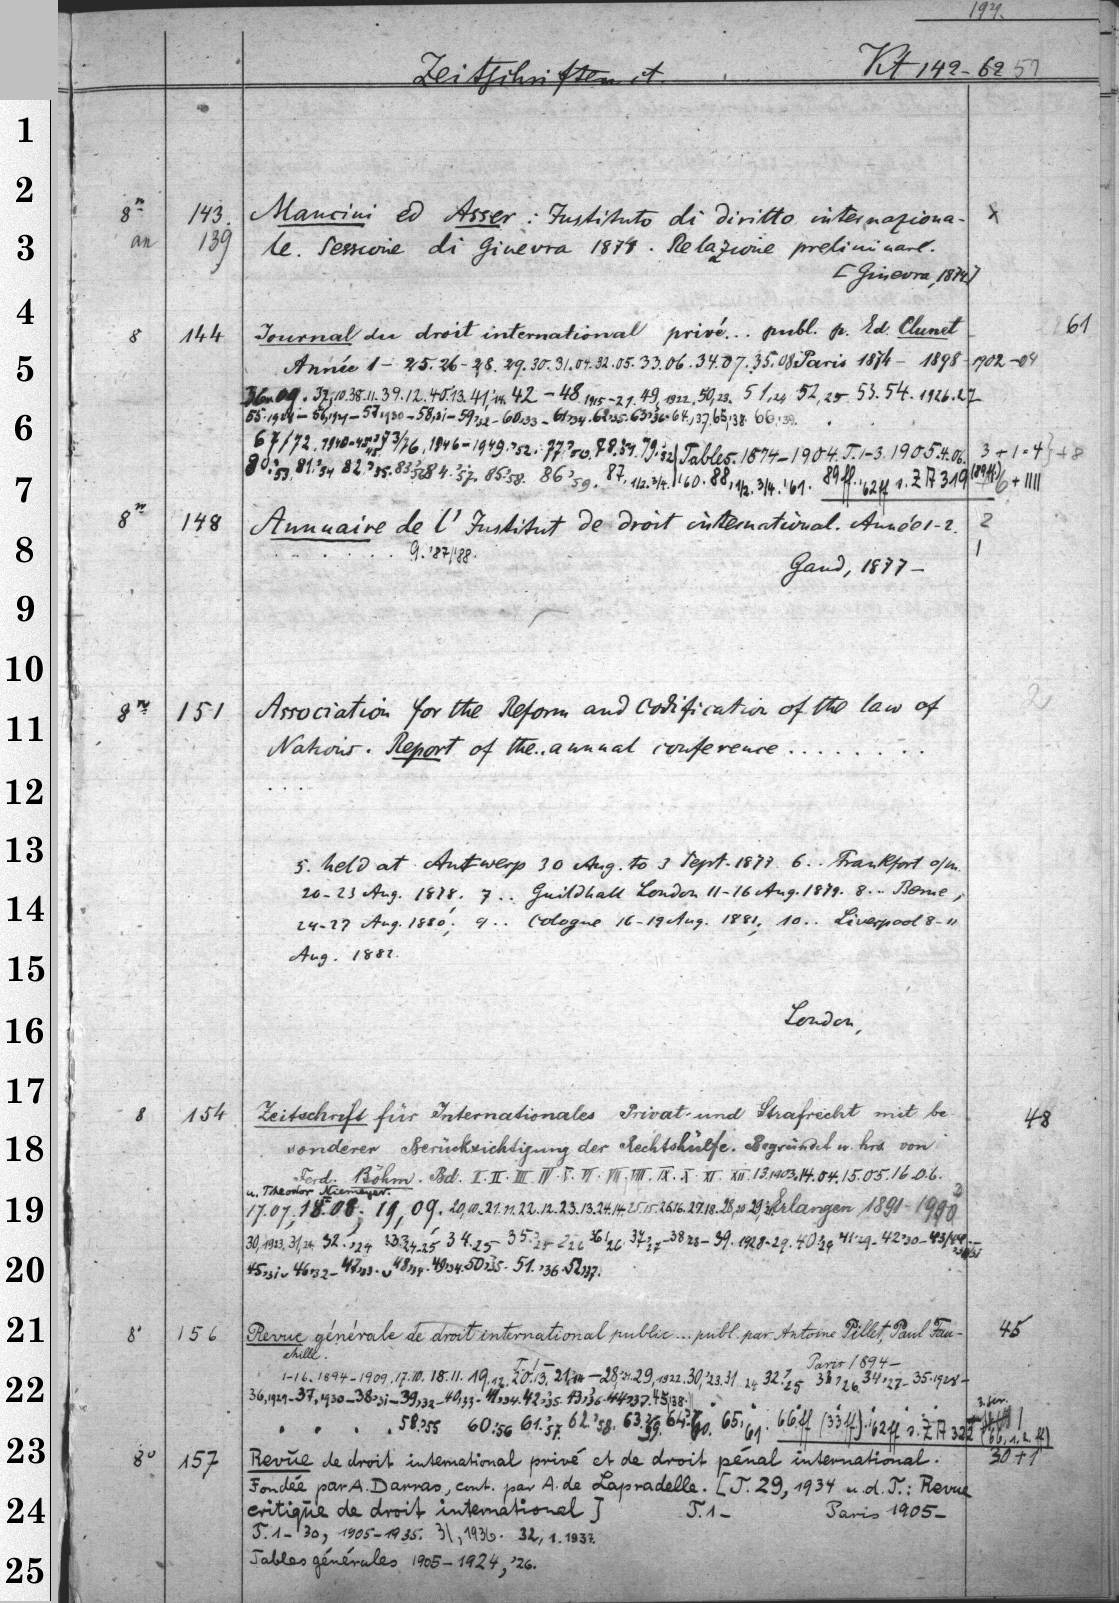 197.
Zeitschriften et. Kt 142-62 57
8° 143. Mancini ed Asser: Instituto di diritto internaziona- x
an 139 le. Sessione di Ginevra 1874. Relazione preliminare.
[Ginevra, 1874]
8 144 Journal du droit international privé... publ. p. Ed. Clunet 61
Année 1- 25. 26-28. 29. 30. 31. 04. 32. 05. 33. 06. 34. 07. 35. 08 Paris 1874- 1898 - 1902-04
36. 09. 37,10. 38.11. 39.12. 40.13. 41,14. 42-48, 1915-21. 49, 1922, 50,23. 51,24 52,25 53. 54. 1926.27
67/72. 1940-45, 73/76, 1946-1949. Tables. 1874-1904. T.1-3. 1905.4.06. 3+1=4 +8
80.'53. 81.'54 82.'55. 85.'58. 86'59. 87, 1/2. 3/4. '60. 88, 1/2. 3/4. '61. 89ff. '62ff s. ZA 319
8° 148 Annuaire de l'Institut de droit international. Année 1-2. 2
9. '87/'88. 1
Gand, 1877-
8° 151 Association for the Reform and Codification of the law of
Nations. Report of the.. annual conference . . . . . . . .
. . . .
5. held at Antwerp 30 Aug. to 3 Sept. 1877. 6.. Frankfort o/m.
20-23 Aug. 1878. 7.. Guildhall London 11-16 Aug. 1879. 8.. Berne,
24-27 Aug. 1880; 9.. Cologne 16-19 Aug. 1881; 10.. Liverpool 8-11
Aug. 1882.
London,
8 154 Zeitschrift für Internationales Privat- und Strafrecht mit be- 48
sonderer Berücksichtigung der Rechtshülfe. Begründet u. hrs. von
Ferd. Böhm. Bd. I. II. III. IV. V. VI. VII. VIII. IX. X. XI. XII. 13.1903. 14.04. 15.05. 16.06.
u. Theodor Niemeyer.
17.07, 18.08. 19, 09. 20,10. 21.11. 22.12. 23.13. 24.14. 25.15. 26.16. 27.18. Erlangen 1891-1990
30, 1923, 31,24. 32.'24 34.25 35. 36'26 37'27-38'28-39. 1928-29. 40'29 41'29-42'30-43/44
45'31 46'32- 49'34. 50'35. 51.'36 52'37.
8° 156 Revue générale de droit international public... publ. par Antoine Pillet, Paul Fau- 45
chille. T. 1- Paris 1894-
1-16. 1894-1909, 17.10. 18.11. 19,12. 20.13. 29, 1922. 30,'23. 31,24 32,'25 33,'26 34,'27- 35.1928-
36,1929-37,1930-38'31-39,'32-40,33-41,'34. 42,'35. 43,'36-44,'37. 45,'38.
58.'55 60.'56 61.'57 62.'58. 63.'59. 64.'60. 65,'61. 66ff (33ff). '62ff s. ZA 322
8° 157 Revue de droit international privé et de droit pénal international. 30+1
Fondée par A. Darras, cont. par A. de Lapradelle. [T. 29, 1934 u. d. T.: Revue
critique de droit international] T. 1- Paris 1905-
T. 1- 30, 1905-1935. 31, 1936. 32, 1. 1937.
Tables générales 1905-1924, '26.
1
2
3
4
5
6
7
8
9
10
11
12
13
14
15
16
17
18
19
20
21
22
23
24
25